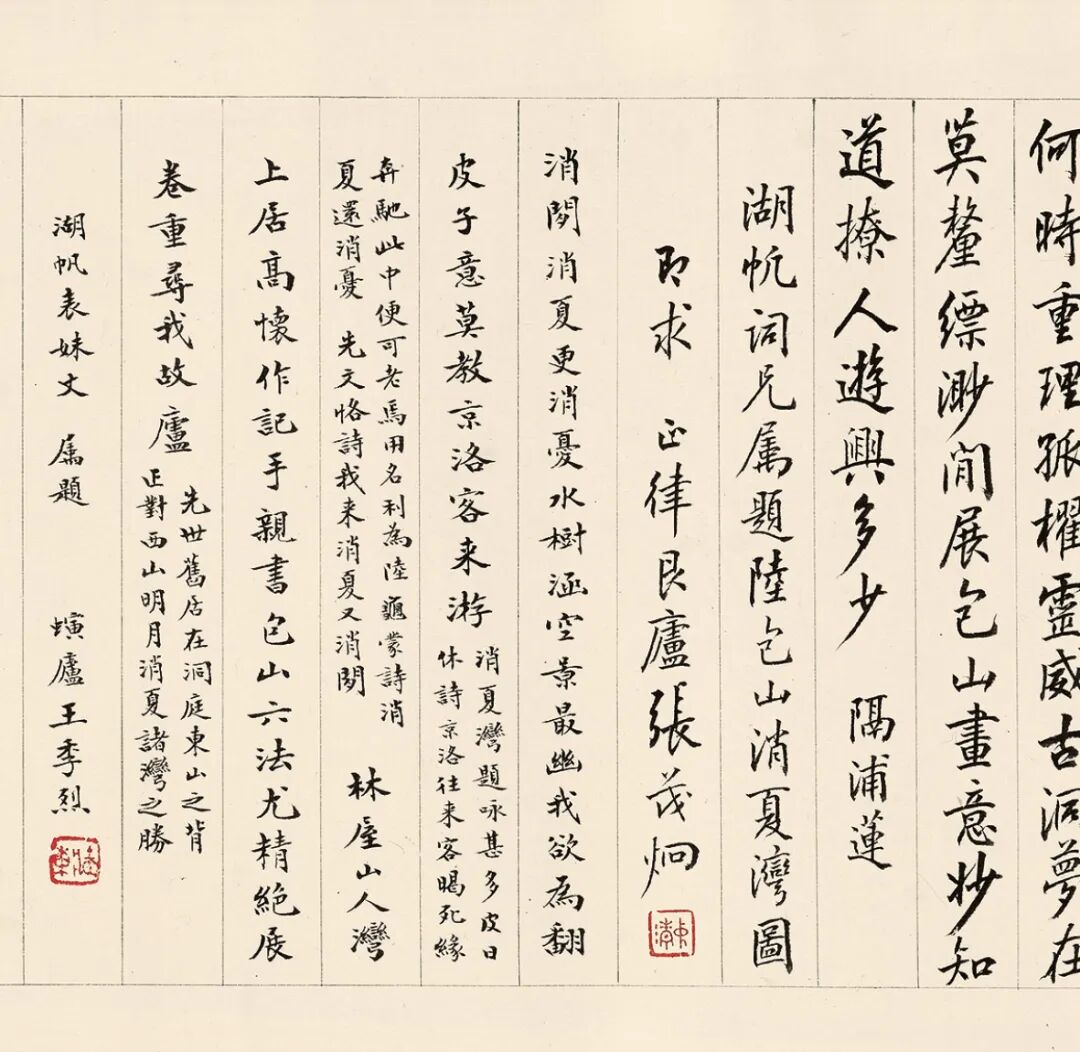 何時重理孤櫂靈威古洞夢在
莫釐縹渺閒展包山畫意妙知
道撩人遊興多少 隔浦蓮
湖帆詞兄属題陸包山消夏灣圖
即求 正律艮廬張茂炯
消閑消夏更消憂水樹涵空景最幽我欲為翻
皮子意莫教京洛客来游 消夏灣題咏甚多皮日
休詩京洛往来客暍死緣
奔馳此中便可老焉用名利為陸龜蒙詩消
夏還消憂 先文恪詩我来消夏又消閑
林屋山人灣
上居高懷作記手親書包山六法尤精絕展
卷重尋我故廬 先世舊居在洞庭東山之背
正對西山明月消夏諸灣之勝
湖帆表妹丈 属題 螾廬王季烈